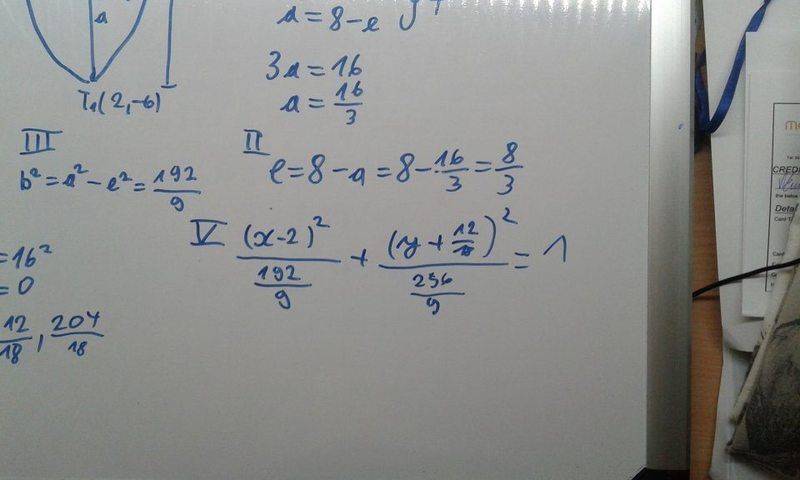 a
T₁(2,-6)
a = 8 - e
3a = 16
a = 16/3
III
b² = a² - e² = 192/9
II
e = 8 - a = 8 - 16/3 = 8/3
= 16²
= 0
12/18, 204/18
V (x-2)²/(192/9) + (y + 12/18)²/(256/9) = 1
CREDI
Detal